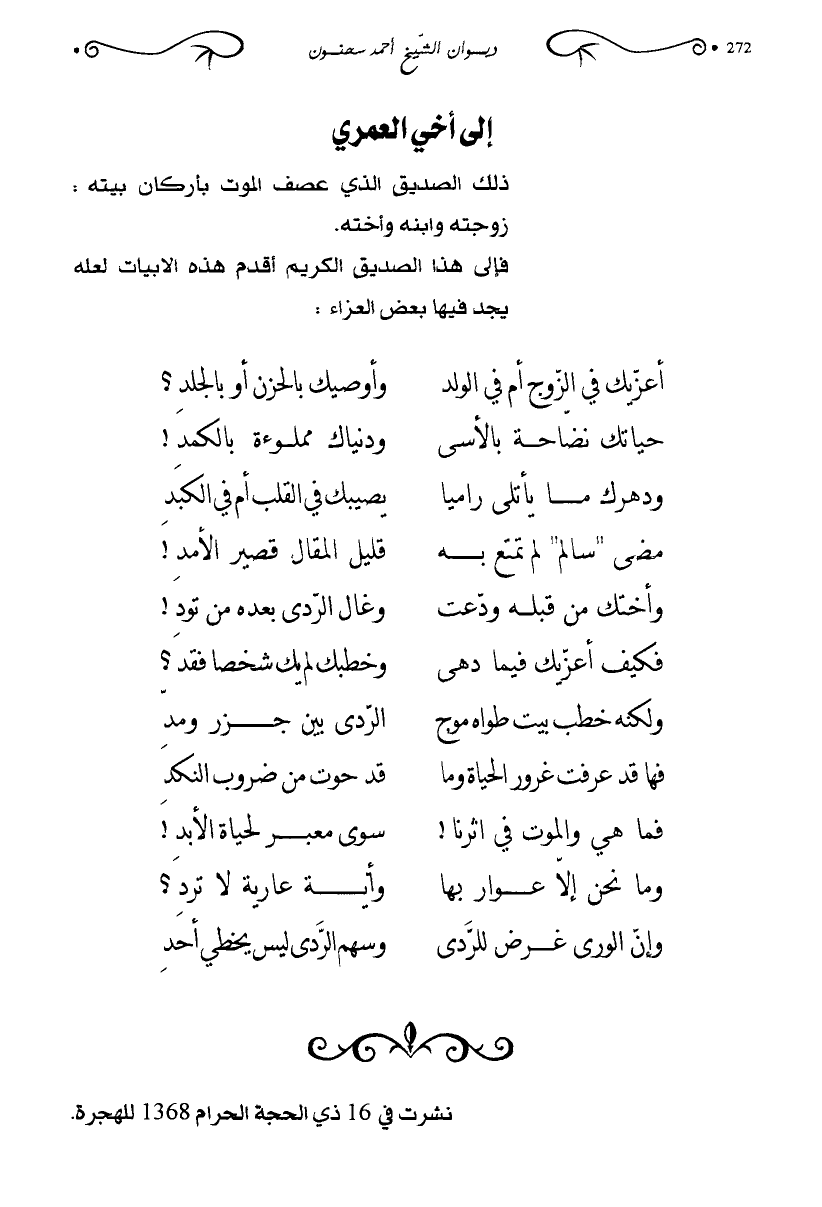 272 ديوان الشّيخ أحمد سحنون
إلى أخي العمري
ذلك الصديق الذي عصف الموت بأركان بيته :
زوجته وابنه وأخته.
فإلى هذا الصديق الكريم أقدم هذه الابيات لعله
يجد فيها بعض العزاء :
أعزّيك في الزّوج أم في الولد وأوصيك بالحزن أو بالجلد ؟
حياتك نضّاحة بالأسى ودنياك مملوءة بالكمد !
ودهرك ما يأتلي راميا يصيبك في القلب أم في الكبد
مضى "سالم" لم تمتّع به قليل المقال قصير الأمد !
وأختك من قبله ودّعت وغال الرّدى بعده من تود !
فكيف أعزّيك فيما دهى وخطبك لم يك شخصا فقد ؟
ولكنه خطب بيت طواه موج الرّدى بين جزر ومدّ
فها قد عرفت غرور الحياة وما قد حوت من ضروب النكد
فما هي والموت في اثرنا ! سوى معبر لحياة الأبد !
وما نحن إلاّ عوار بها وأية عارية لا ترد ؟
وإنّ الورى غرض للرَّدى وسهم الرَّدى ليس يخطي أحد
نشرت في 16 ذي الحجة الحرام 1368 للهجرة.